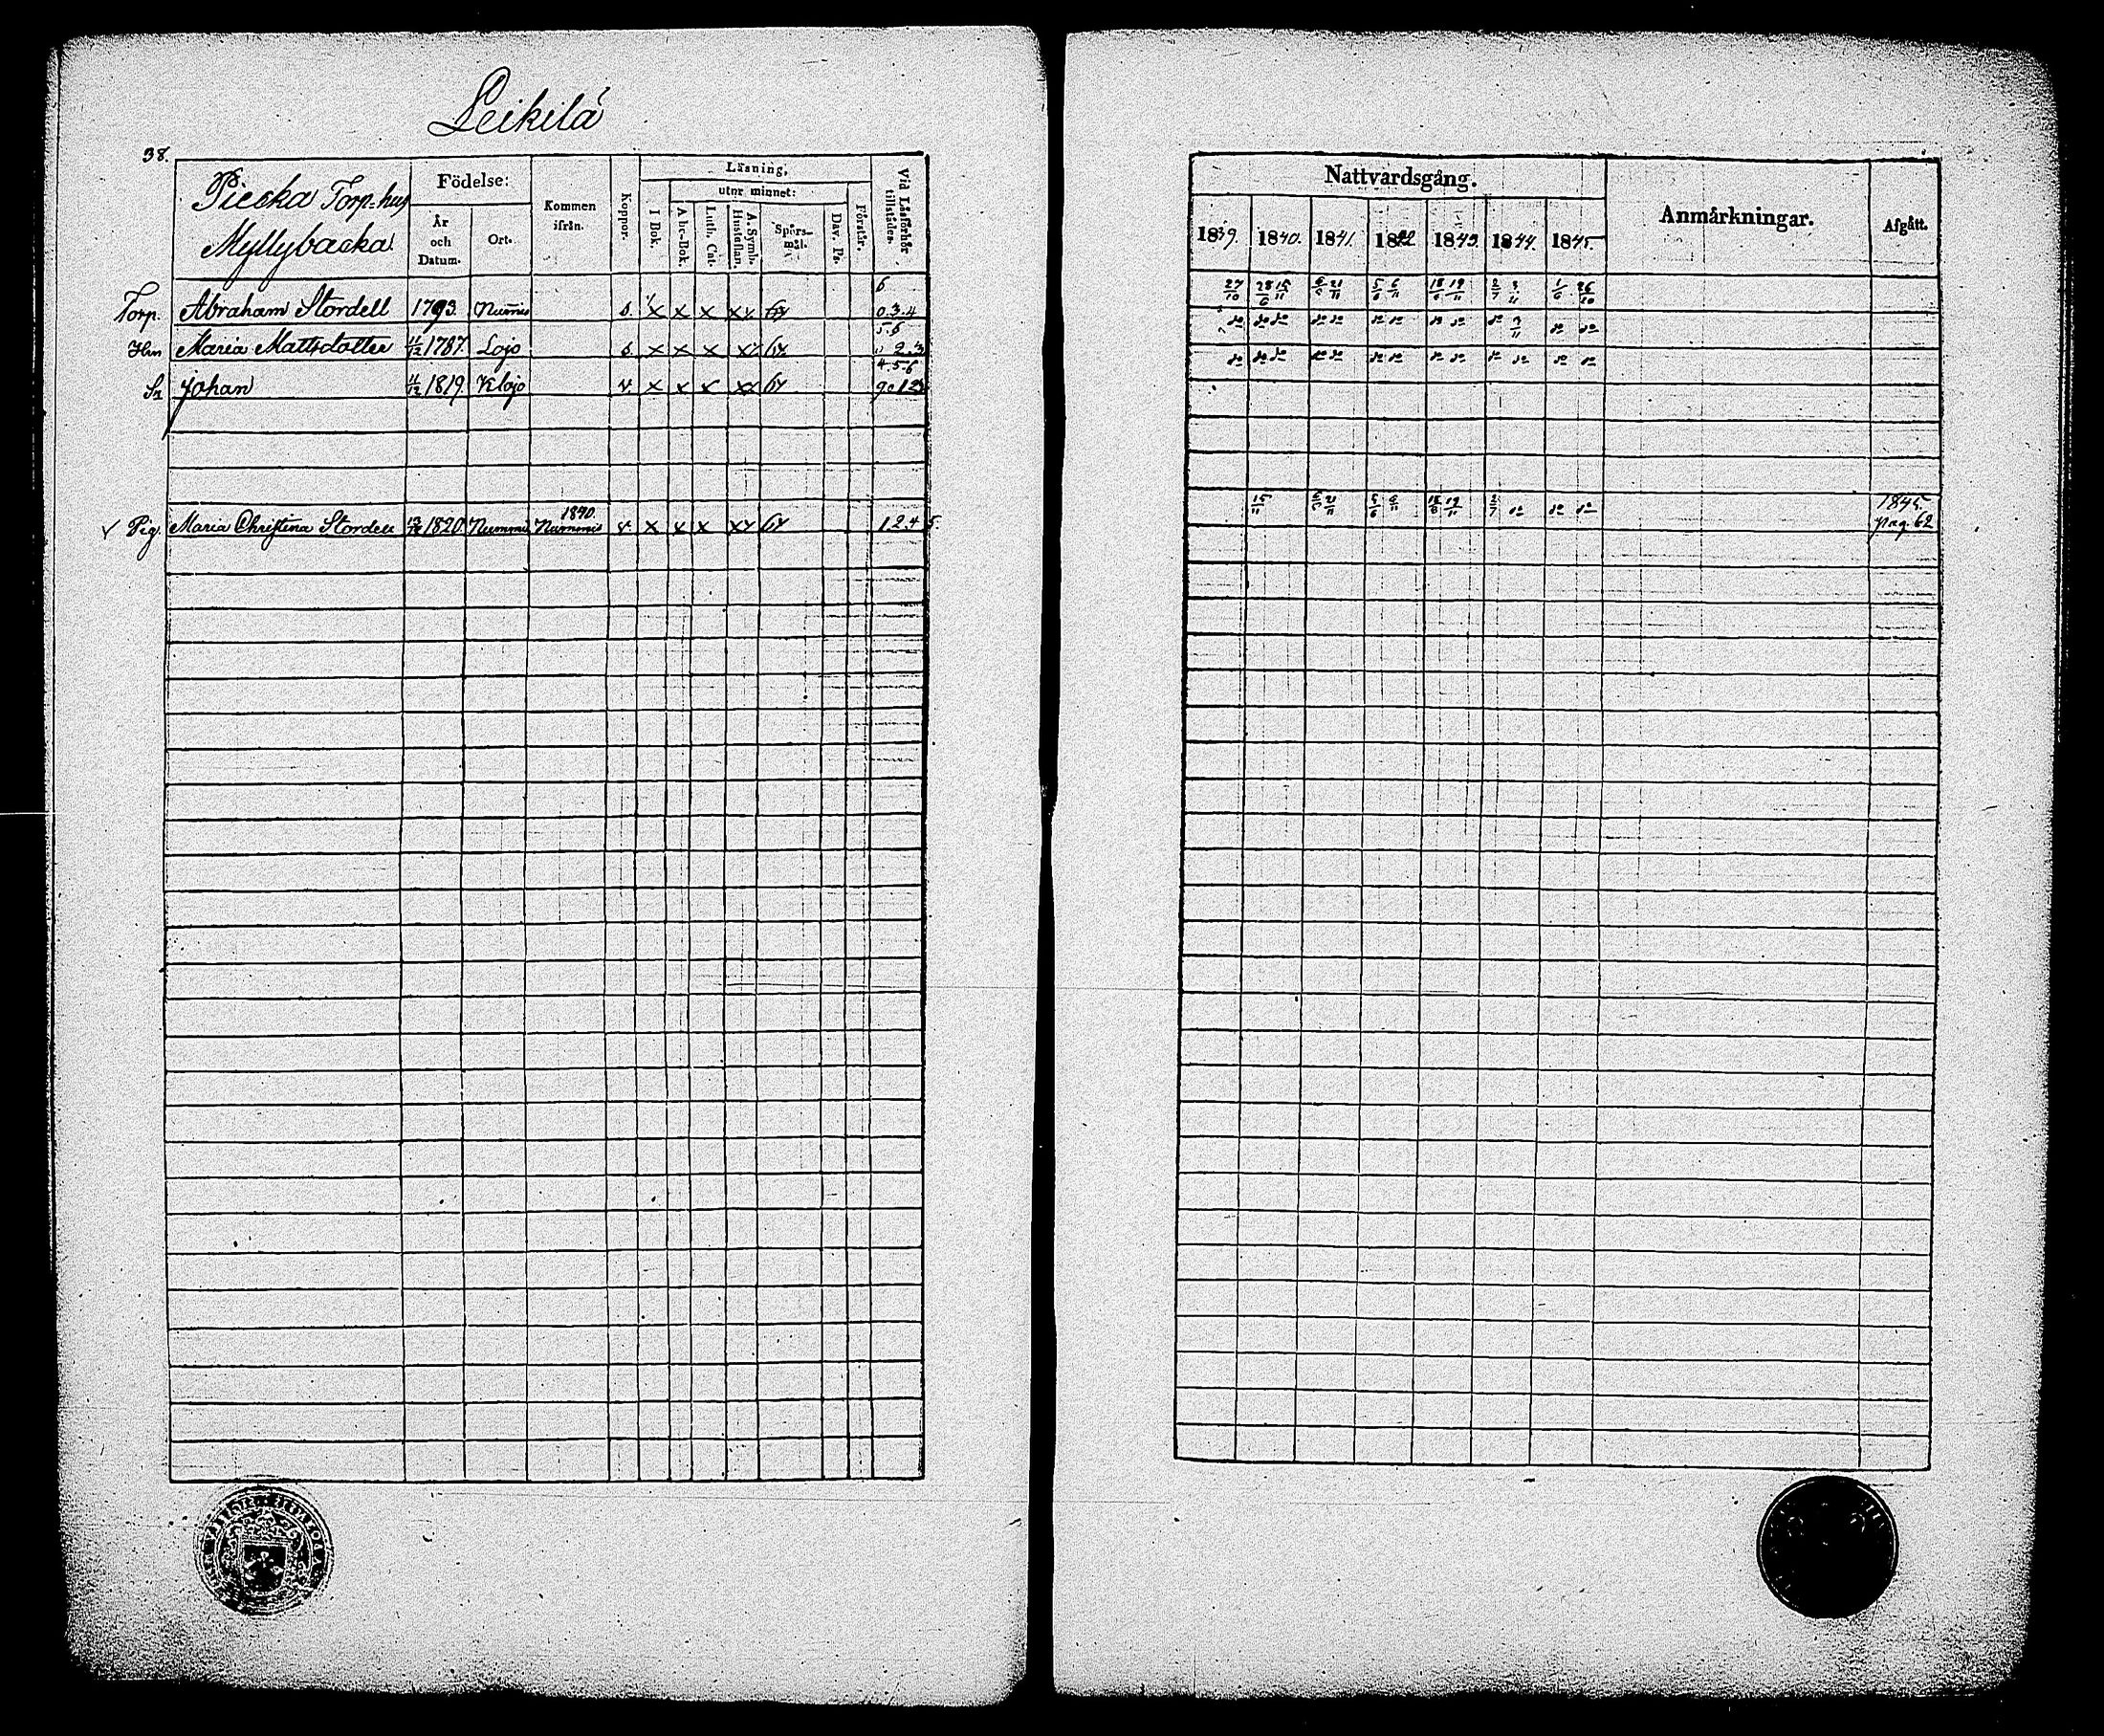 Leikilá
38.
Pieska Torp-hus
Myllybacka
Födelse:
År
och
Datum.
Ort.
Kommen
ifrån.
Koppor.
Läsning,
utur minnet:
I Bok.
A bc-Bok.
Luth. Cat.
A. Symb.
Hustaflan.
Spörs-
mål.
Dav. Ps.
Förstår.
Vid Läsförhör
tillstädes.
Torp. Abraham Stordell 1793. Nummis s. x x x xx 6 0.3.4
Hm Maria Mattsdotter 11/12 1787. Lojo s. x x x xx 5.6 2.3
Sn Johan 11/12 1819. Klojo v. x x x xx 4.5.6
Pig. Maria Christina Stordell 1820. Nummis 1840. Nummis v. x x x xx 1.2.4 5.
Nattvardsgång.
1839. 1840. 1841. 1842 1843. 1844. 1845.
Anmärkningar.
Afgått.
27/10 28/6 15/11 21/11 5/6 6/11 18/6 19/11 2/7 3/11 1/6 26/10
do do do do do do do do do do 3/11 do do
do do do do do do do do do do do do do
15/11 21/11 5/6 6/11 18/6 19/11 2/7 do do do 1845.
pag. 62